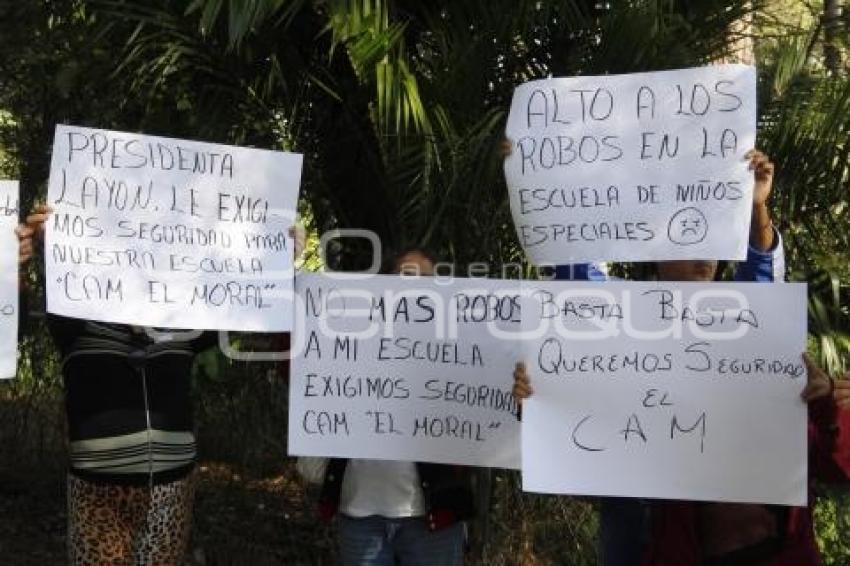 PRESIDENTA
LAYON, LE EXIGI-
MOS SEGURIDAD PARA
NUESTRA ESCUELA
"CAM EL MORAL"
ALTO A LOS
ROBOS EN LA
ESCUELA DE NIÑOS
ESPECIALES
NO MAS ROBOS
A MI ESCUELA
EXIGIMOS SEGURIDAD
CAM "EL MORAL"
BASTA BASTA
QUEREMOS SEGURIDAD
EL
CAM
agencia
enfoque